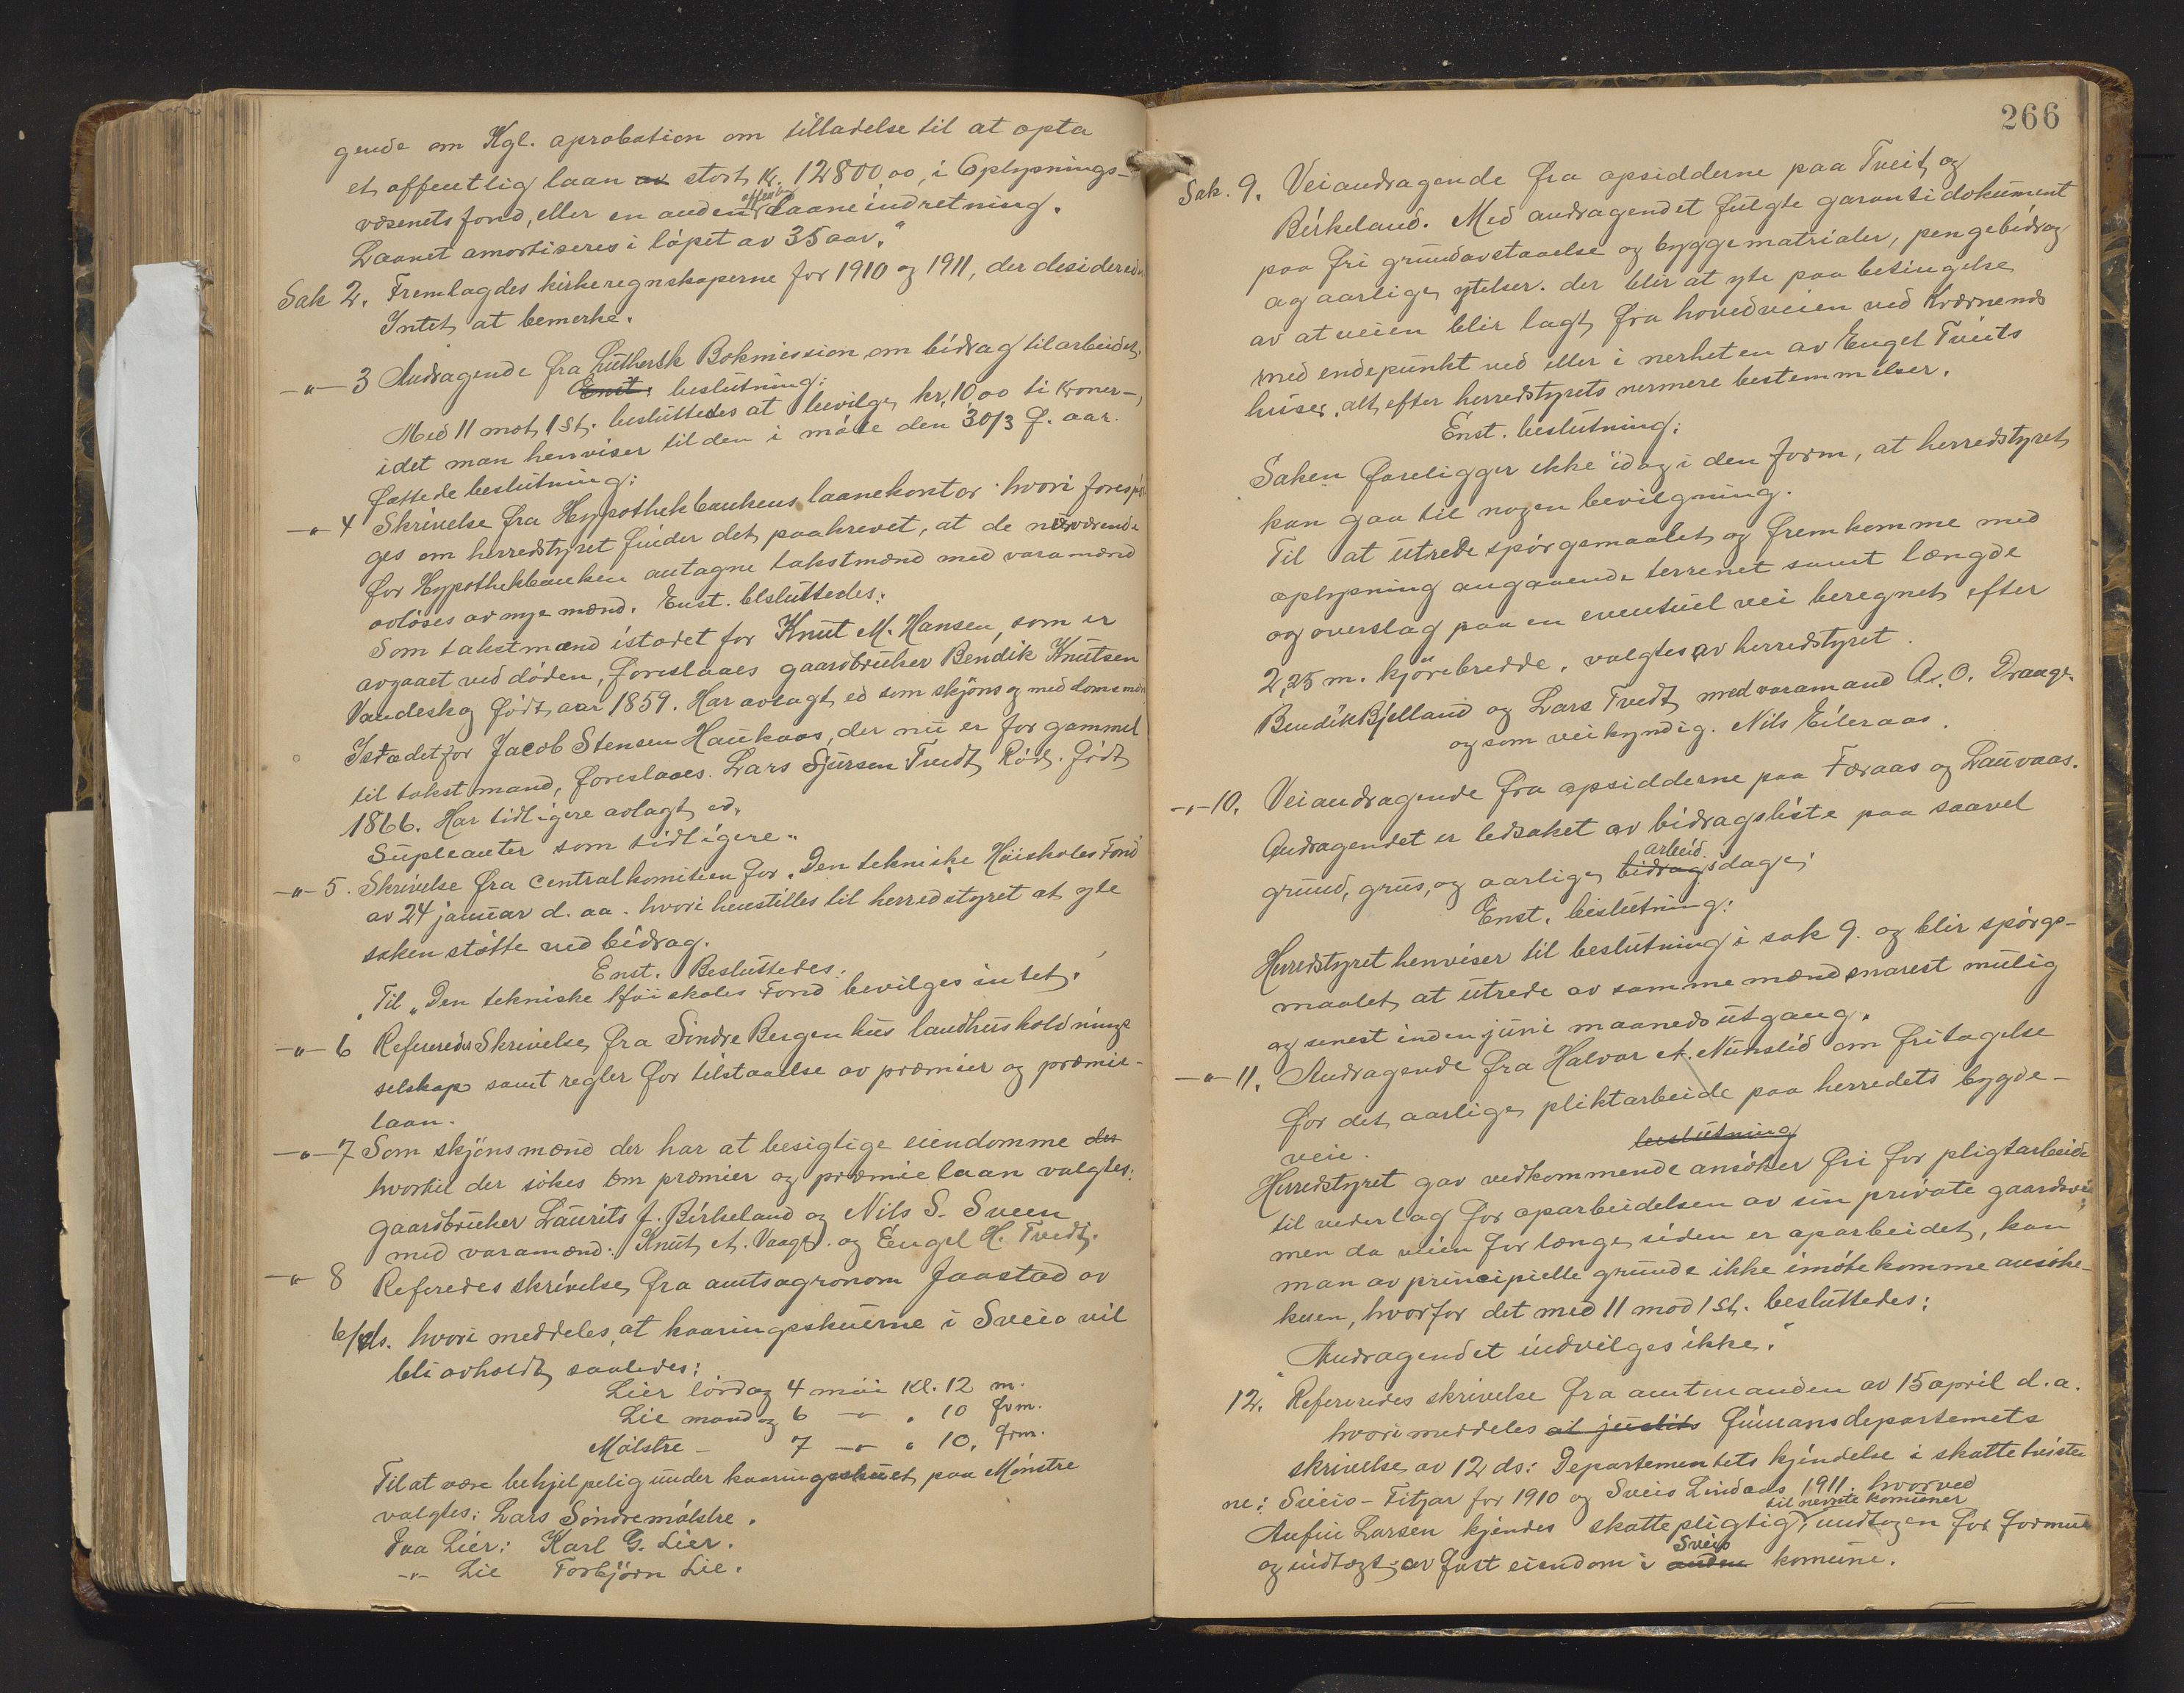 gende om Kgl. aprobation om tilladelse til at opta
et offentlig laan av stort kr. 12800 00, i Oplysnings-
væsenets fond, eller en anden offentlig Laaneindretning.
Laanet amortiseres i löpet av 35 aar."
Sak 2. Fremlagdes kirkeregnskaperne for 1910 og 1911, der desideredes
Intet at bemerke.
-"- 3 Andragende fra Luthersk Bokmission om bidrag til arbeidet.
Enst. beslutning:
Med 11 mot 1 St. besluttedes at bevilge kr. 10,00 ti Kroner-,
idet man henviser til den i möte den 30/3 f. aar.
fattede beslutning:
-"- 4 Skrivelse fra Hypothekbankens laanekontor hvori forespör
ges om herredstyret finder det paakrevet, at de nuværende
for Hypothekbanken antagne takstmænd med varamænd
avlöses av nye mænd. Enst. besluttedes:
Som takstmænd istadet for Knut M. Hansen, som er
avgaaet ved döden, foreslaaes gaardbruker Bendik Knutsen
Vandeskog födt aar 1859. Har avlagt ed som skjöns og meddomsmand
Istædet for Jacob Stensen Haukaas, der nu er for gammel
til takstmand, foreslaaes Lars Sjursen Tvedt, Röd. födt
1866. Har tidligere avlagt ed.
Supleanter som tidligere.
-"- 5. Skrivelse fra centralkomiteen for "Den tekniske Höiskoles Fond"
av 24 januar d. aa. hvori henstilles til herredstyret at yte
saken stötte ved bidrag.
Enst. Besluttedes:
"Til "Den tekniske Höiskoles Fond bevilges intet."
-"- 6 Refereredes Skrivelse fra Söndre Bergenhus landhusholdnings
selskap samt regler for tilstaaelse av præmier og præmie-
laan.
-"- 7 Som skjönsmænd der har at besigtige eiendomme der
hvortil der sökes om præmier og præmielaan valgtes:
gaardbruker Laurits J. Birkeland og Nils S. Sveen
med varamænd: Knut A. Vaage og Engel H. Tvedt.
-"- 8 Referedes skrivelse fra amtsagronom Jaastad av
6/ ds. hvori meddeles, at kaaringsskuerne i Sveio vil
bli avholdt saaledes:
Lier lördag 4 mai Kl. 12 m.
Lie mandag 6 -"- " 10 fvm.
Mölstre - 7 -"- " 10. fvm.
Til at være behjelpelig under kaaringsskuet paa Mönstre
valgtes: Lars Söndremölstre.
Paa Lier: Karl G. Lier.
-"- Lie Torbjörn Lie.
266
Sak. 9. Veiandragende fra opsidderne paa Tveit og
Birkeland. Med andragendet fulgte garantidokument
paa fri grundavstaaelse og byggematrialer, pengebidrag
og aarlige ytelser. der blir at yte paa betingelse
av at veien blir lagt fra hovedveien ved Kværnenes
med endepunkt ved eller i nerheten av Engel Tveits
huser, alt efter herredstyrets nermere bestemmelser.
Enst. beslutning:
Saken foreligger ikke idag i den form, at herredstyret
kan gaa til nogen bevilgning.
Til at utrede spörgsmaalet og fremkomme med
oplysning angaaende terrenet samt længde
og overslag paa en eventuel vei beregnet efter
2,25 m. kjörebredde. valgtes av herredstyret.
Bendik Bjelland og Lars Tvedt med varamand A. O. Draage.
og som veikyndig. Nils Eileraas.
-"- 10. Veiandragende fra opsidderne paa Færaas og Lauvaas.
Andragendet er ledsaket av bidragsliste paa saavel
grund, grus, og aarlige bidrags arbeid.dage;
Enst. beslutning:
Herredstyret henviser til beslutning i sak 9. og blir spörgs-
maalet at utrede av samme mænd snarest mulig
og senest inden juni maaneds utgang.
-"- 11. Andragende fra Halvor A. Nunslid om fritagelse
for det aarlige pliktarbeide paa herredets bygde-
veie. beslutning
Herredstyret gav vedkommende ansöker fri for pligtarbeide
til vederlag for oparbeidelsen av sin private gaardsvei;
men da veien for længe siden er oparbeidet, kan
man av principielle grunde ikke imötekomme ansöke-
ren, hvorfor det med 11 mod 1 St. besluttedes:
"Andragendet indvilges ikke."
12. Refereredes skrivelse fra amtmanden av 15 april d.a.
hvori meddeles at justits finansdepartemets
skrivelse av 12 ds: Departementets kjendelse i skattetviste
ne: Sveio-Fitjar for 1910 og Sveio Lindaas 1911. hvorved
Anfin Larsen kjendes skattepligtig til nevnte komuner, undtagen for formue
og indtægt av fast eiendom i anden Sveio komune.